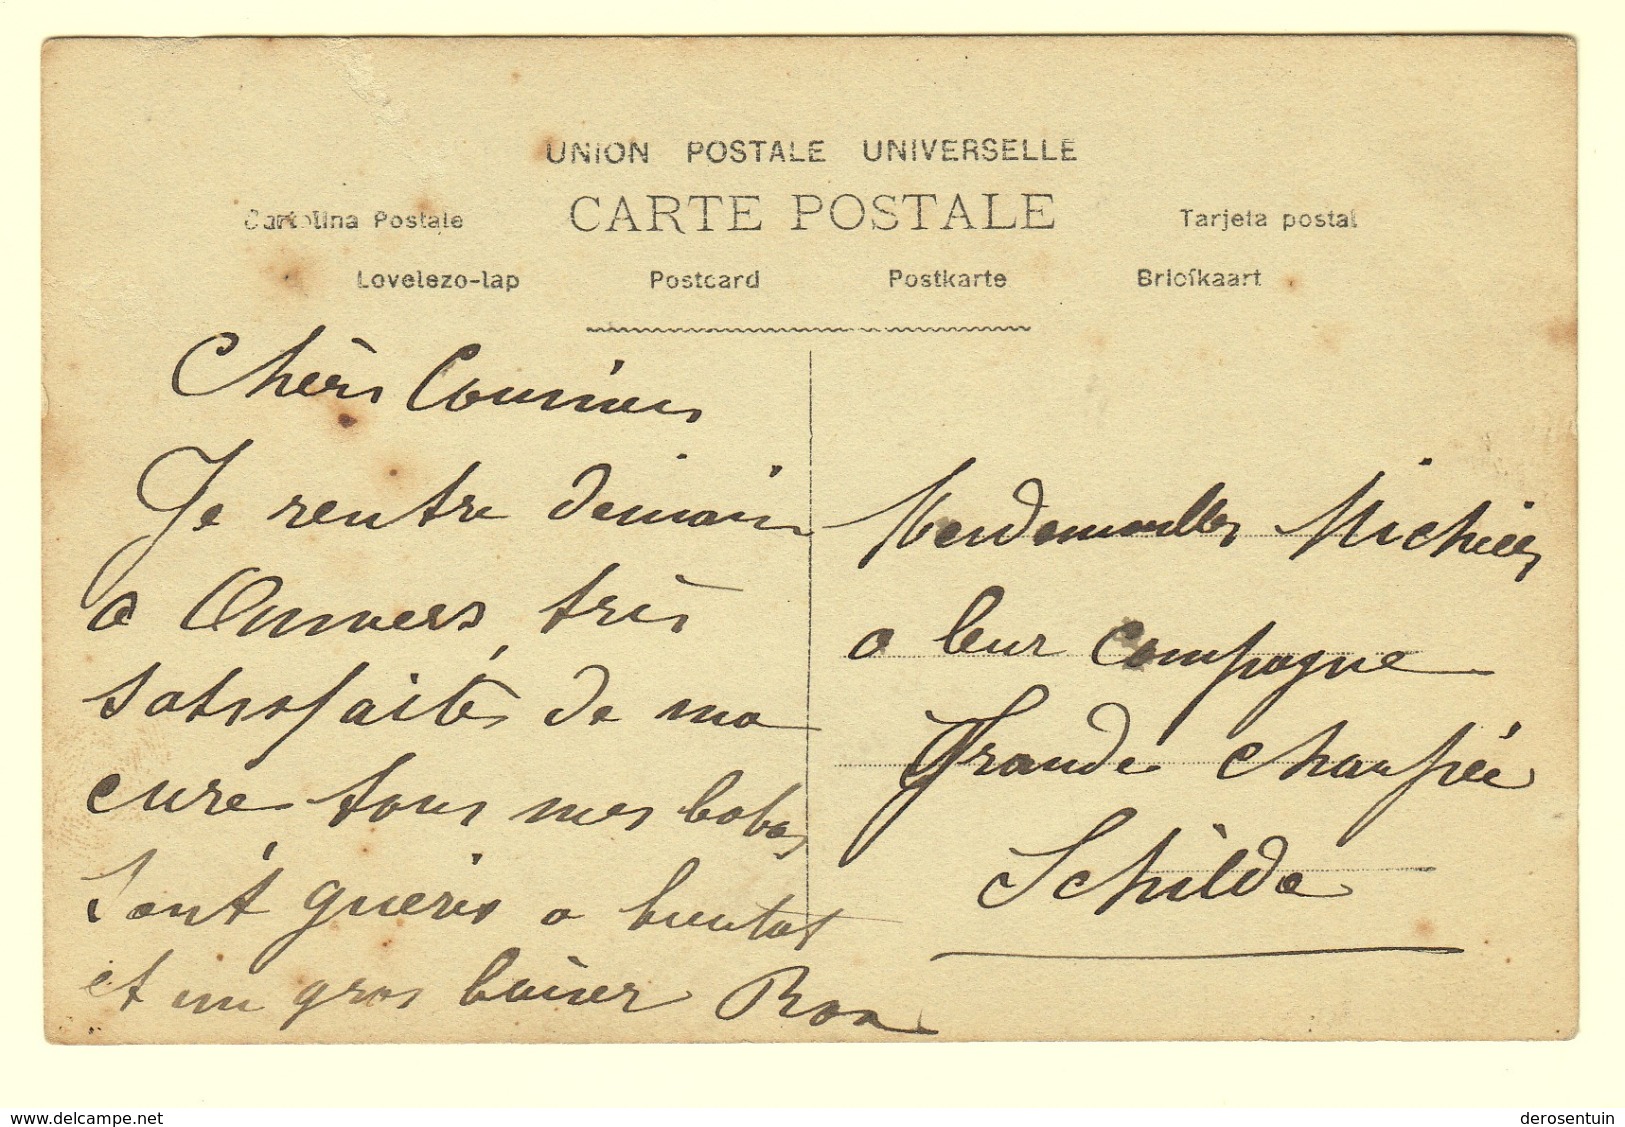 UNION POSTALE UNIVERSELLE
Cartolina Postale CARTE POSTALE Tarjeta postal
Levelezo-lap Postcard Postkarte Briefkaart
Chèrs Cousines
Je rentre demain
a Anvers, très
satisfaite de ma
cure tous mes bobos
sont guéris a bientot
et un gros baiser Rosa
Mesdemoiselles Michiels
a leur campagne
Grande chaussée
Schilde
www.delcampe.net derosentuin